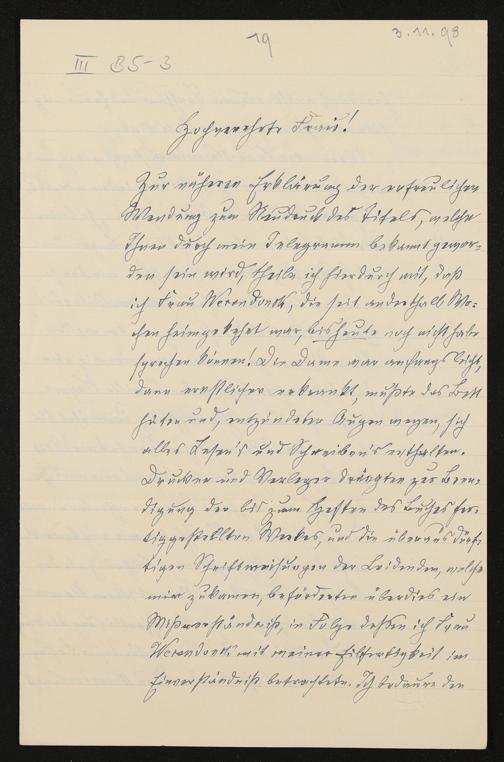 19
3.11.98
III B5-3
Hochverehrte Frau!
Zur näheren Erklärung der erfreulichen
Wendung zum Neudruck des Titels, welche
Ihnen durch mein Telegramm bekannt gewor-
den sein wird, theile ich hierdurch mit, daß
ich Frau Wesendonk, die seit anderthalb Wo-
chen heimgekehrt war, bis heute noch nicht habe
sprechen können! Die Dame war anfangs leicht,
dann ernstlicher erkrankt, mußte das Bett
hüten und, entzündeter Augen wegen, sich
alles Lesen's und Schreiben's enthalten.
Drucker und Verleger drängten zur Been-
digung des bis zum Heften des Buches fer-
tiggestellten Werkes, und die überaus dürf-
tigen Schriftweisungen der Leidenden, welche
mir zukamen, beförderten überdies ein
Mißverständniß, in Folge dessen ich Frau
Wesendonk mit meiner Eilfertigkeit im
Einverständniß betrachtete. Ich bedaure den